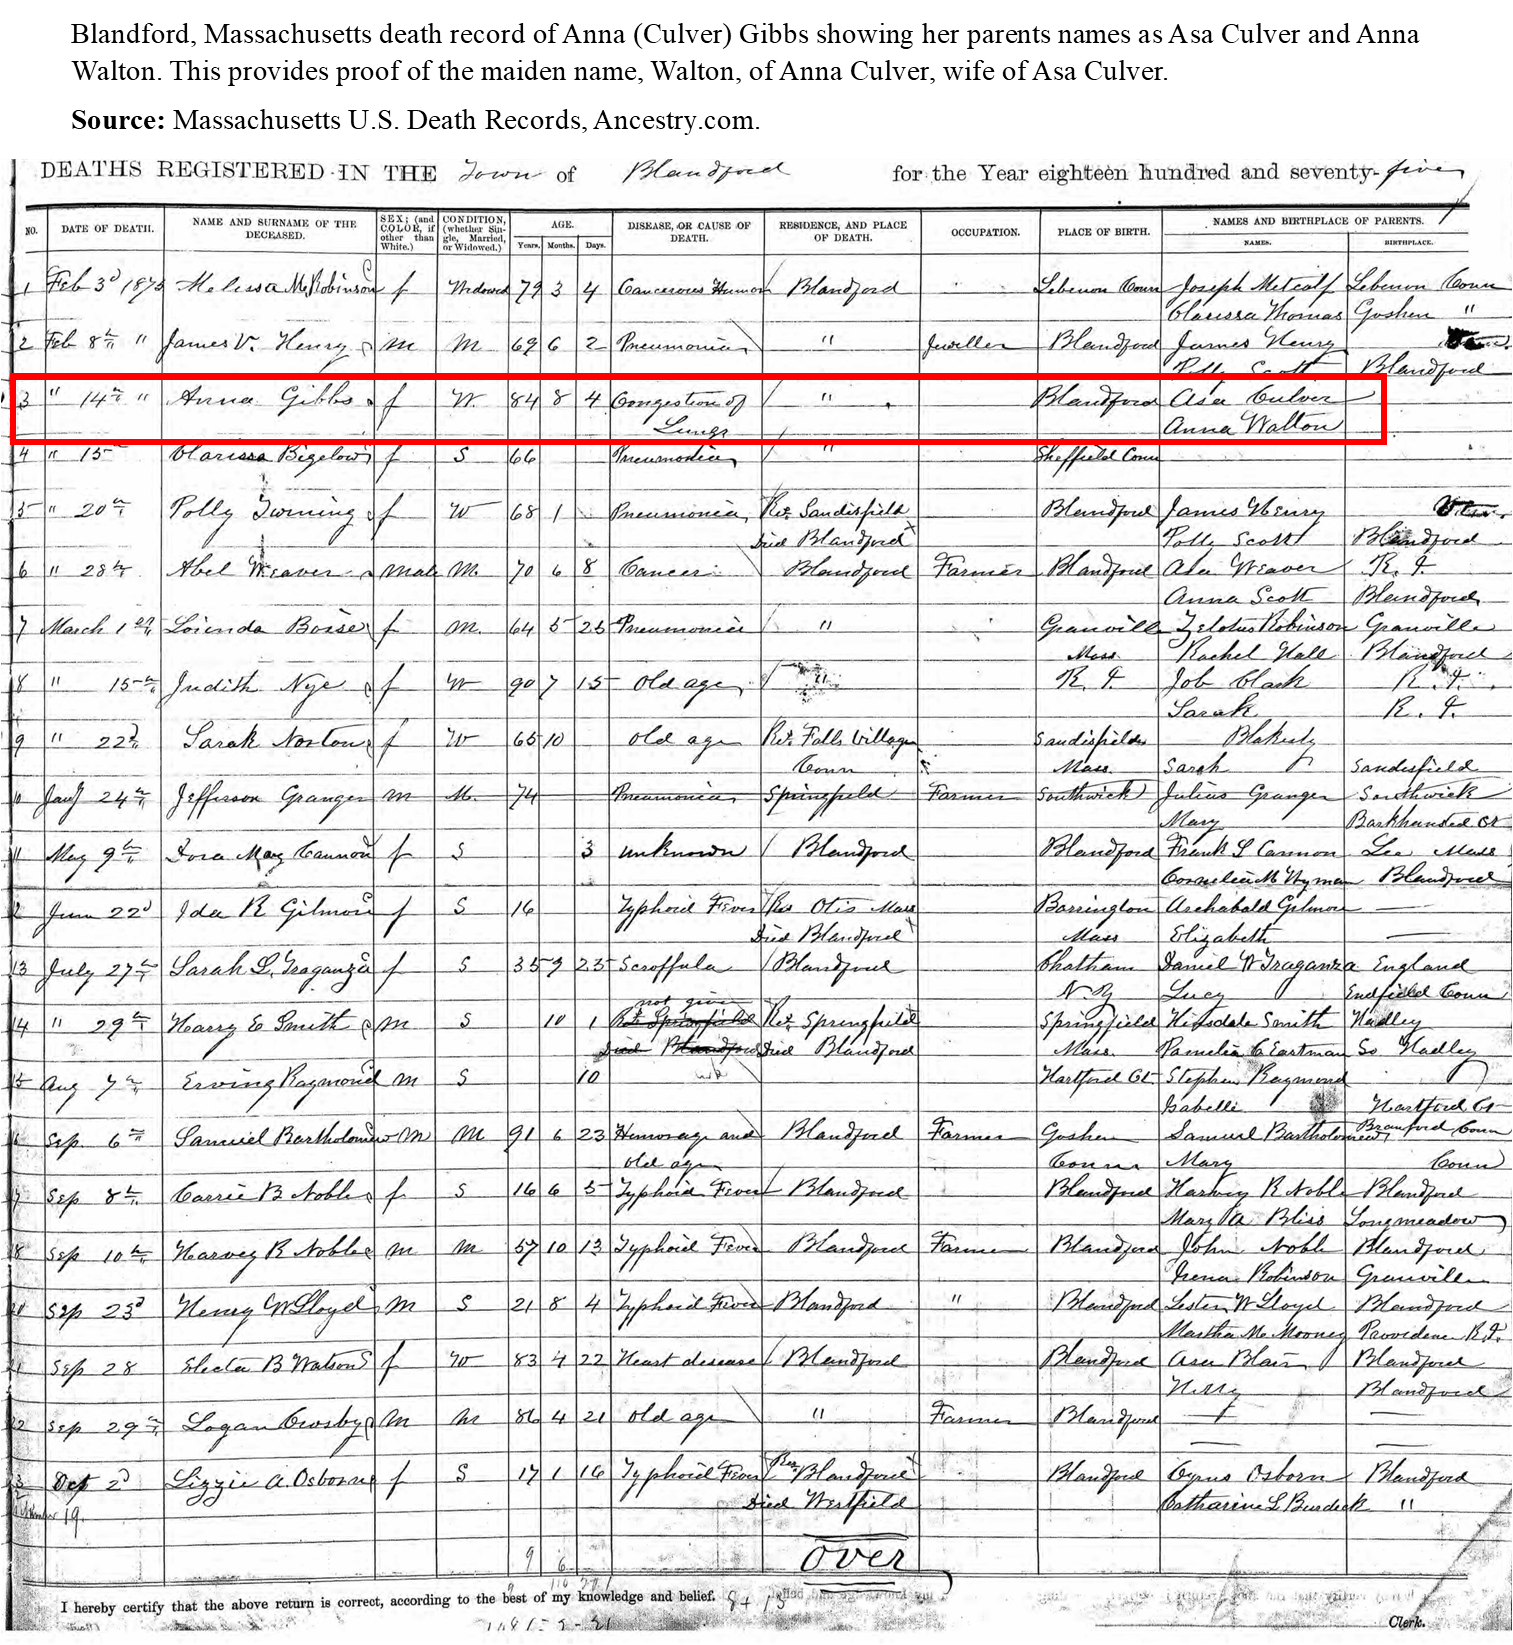 Blandford, Massachusetts death record of Anna (Culver) Gibbs showing her parents names as Asa Culver and Anna
Walton. This provides proof of the maiden name, Walton, of Anna Culver, wife of Asa Culver.
Source: Massachusetts U.S. Death Records, Ancestry.com.
DEATHS REGISTERED IN THE Town of Blandford for the Year eighteen hundred and seventy-five
NO. DATE OF DEATH. NAME AND SURNAME OF THE DECEASED. SEX; (and COLOR, if other than White.) CONDITION, (whether Single, Married, or Widowed.) AGE. Years. Months. Days. DISEASE, OR CAUSE OF DEATH. RESIDENCE, AND PLACE OF DEATH. OCCUPATION. PLACE OF BIRTH. NAMES AND BIRTHPLACE OF PARENTS. NAMES. BIRTHPLACE.
1 Feb 3d 1875 Melissa M. Robinson f Widowed 79 3 4 Cancerous Humor Blandford Lebenon Conn Joseph Metcalf Lebenon Conn
Clarissa Thomas Goshen "
2 Feb 8th " James V. Henry m M 69 6 2 Pneumonia " Jeweller Blandford James Henry
Polly Scott Blandford
3 " 14th " Anna Gibbs f W. 84 8 4 Congestion of " Blandford Asa Culver
Lungs Anna Walton
4 " 15 Clarissa Bigelow f S 66 Pneumonia " Sheffield Conn
5 " 20th Polly Twining f W 68 1 Pneumonia Res Sandisfield Blandford James Henry
Died Blandford Polly Scott Blandford
6 " 28th Abel Weaver male M. 70 6 8 Cancer Blandford Farmer Blandford Asa Weaver R. I.
Anna Scott Blandford
7 March 1st Loienda Boise f M. 64 5 25 Pneumonia " Granville Zelotus Robinson Granville
Mass Rachel Hall Blandford
8 " 15th Judith Nye f W 90 7 15 old age " R. I. Job Clark R. I.
Sarah R. I.
9 " 22d Sarah Norton f W 65 10 old age Res Falls Village Sandisfield Blakesly
Conn Mass. Sarah Sandisfield
10 Jany 24th Jefferson Granger m M. 74 Pneumonia Springfield Farmer Southwick Julius Granger Southwick
Mary Barkhamsted Ct
11 May 9th Dora May Cannon f S 3 unknown Blandford Blandford Frank L Cannon Lee Mass
Cornelia M Wyman Blandford
12 June 22d Ida R Gilmore f S 16 Typhoid Fever Res Otis Mass Barrington Archabald Gilmore
Died Blandford Mass Elizabeth
13 July 27th Sarah L. Traganza f S 35 9 25 Scroffula Blandford Chatham Daniel W Traganza England
N. Y Lucy Endfield Conn
not given
14 " 29th Harry E Smith m S 10 1 Res Springfield Res Springfield Springfield Hinsdale Smith Hadley
Died Blandford Died Blandford Mass. Pamelia C Eastman So Hadley
15 Aug 7th Erving Raymond m S 10 Hartford Ct Stephen Raymond
Isabelle Hartford Ct
16 Sep. 6th Samuel Bartholomew M M 91 6 23 Hemorage and Blandford Farmer Goshen Samuel Bartholomew Branford Conn
old age Conn Mary Conn
17 Sep 8th Carrie B Noble f S 16 6 5 Typhoid Fever Blandford Blandford Harvey R Noble Blandford
Mary A Bliss Longmeadow
18 Sep 10th Harvey R Noble m M 57 10 13 Typhoid Fever Blandford Farmer Blandford John Noble Blandford
Irena Robinson Granville
20 Sep 23d Henry W Lloyd M S 21 8 4 Typhoid Fever Blandford " Blandford Lester W Lloyd Blandford
Martha M Mooney Providence R.I.
21 Sep 28 Electa B Watson f W 83 4 22 Heart disease Blandford Blandford Asa Blair Blandford
Blandford
22 Sep 29th Logan Crosby M M 86 4 21 old age " Farmer Blandford
23 Oct 2d Lizzie A. Osborne f S 17 1 16 Typhoid Fever Res Blandford Blandford Cyrus Osborn Blandford
19. Died Westfield Catharine L Burdick "
9 6 over
I hereby certify that the above return is correct, according to the best of my knowledge and belief.
Clerk.